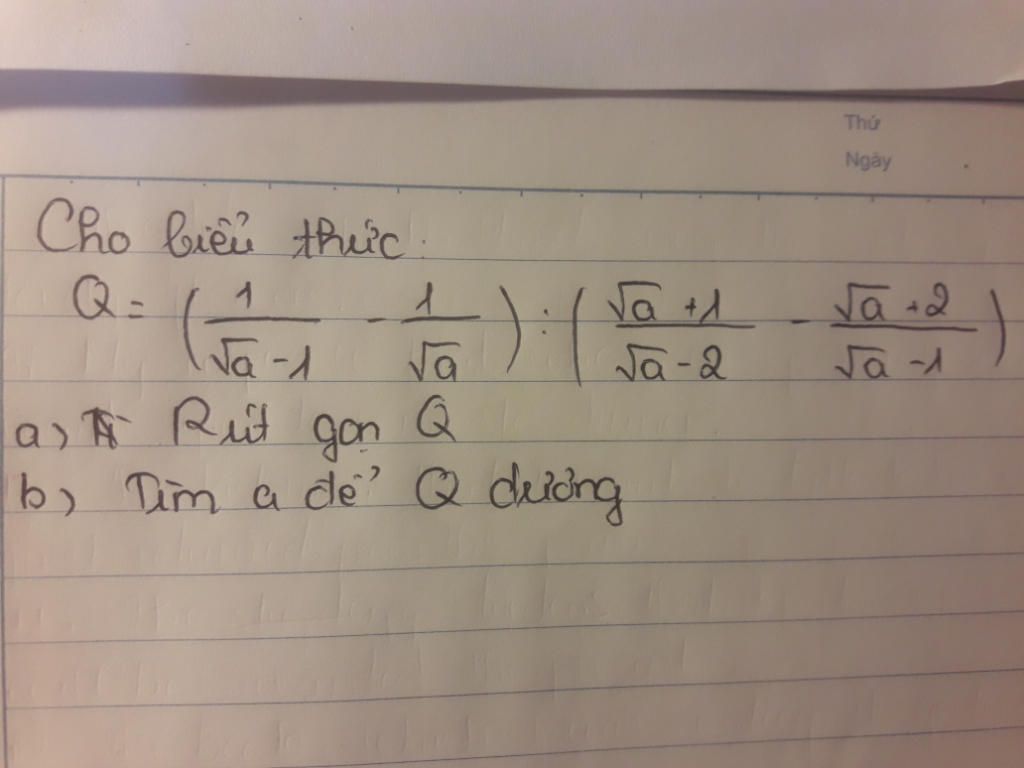 Thứ
Ngày
Cho biểu thức:
Q = (1/(√a - 1) - 1/√a) : ((√a + 1)/(√a - 2) - (√a + 2)/(√a - 1))
a) Rút gọn Q
b) Tìm a để Q dương